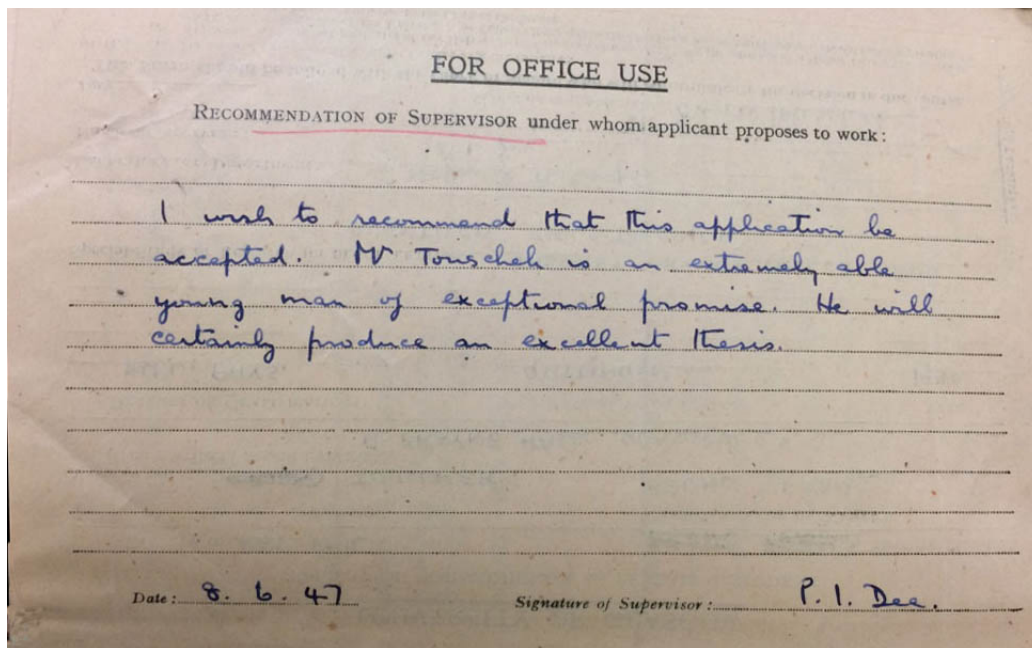 FOR OFFICE USE
RECOMMENDATION OF SUPERVISOR under whom applicant proposes to work :
I wish to recommend that this application be
accepted. Mr Touschek is an extremely able
young man of exceptional promise. He will
certainly produce an excellent thesis.
Date : 8. 6. 47 Signature of Supervisor : P. I. Dee.